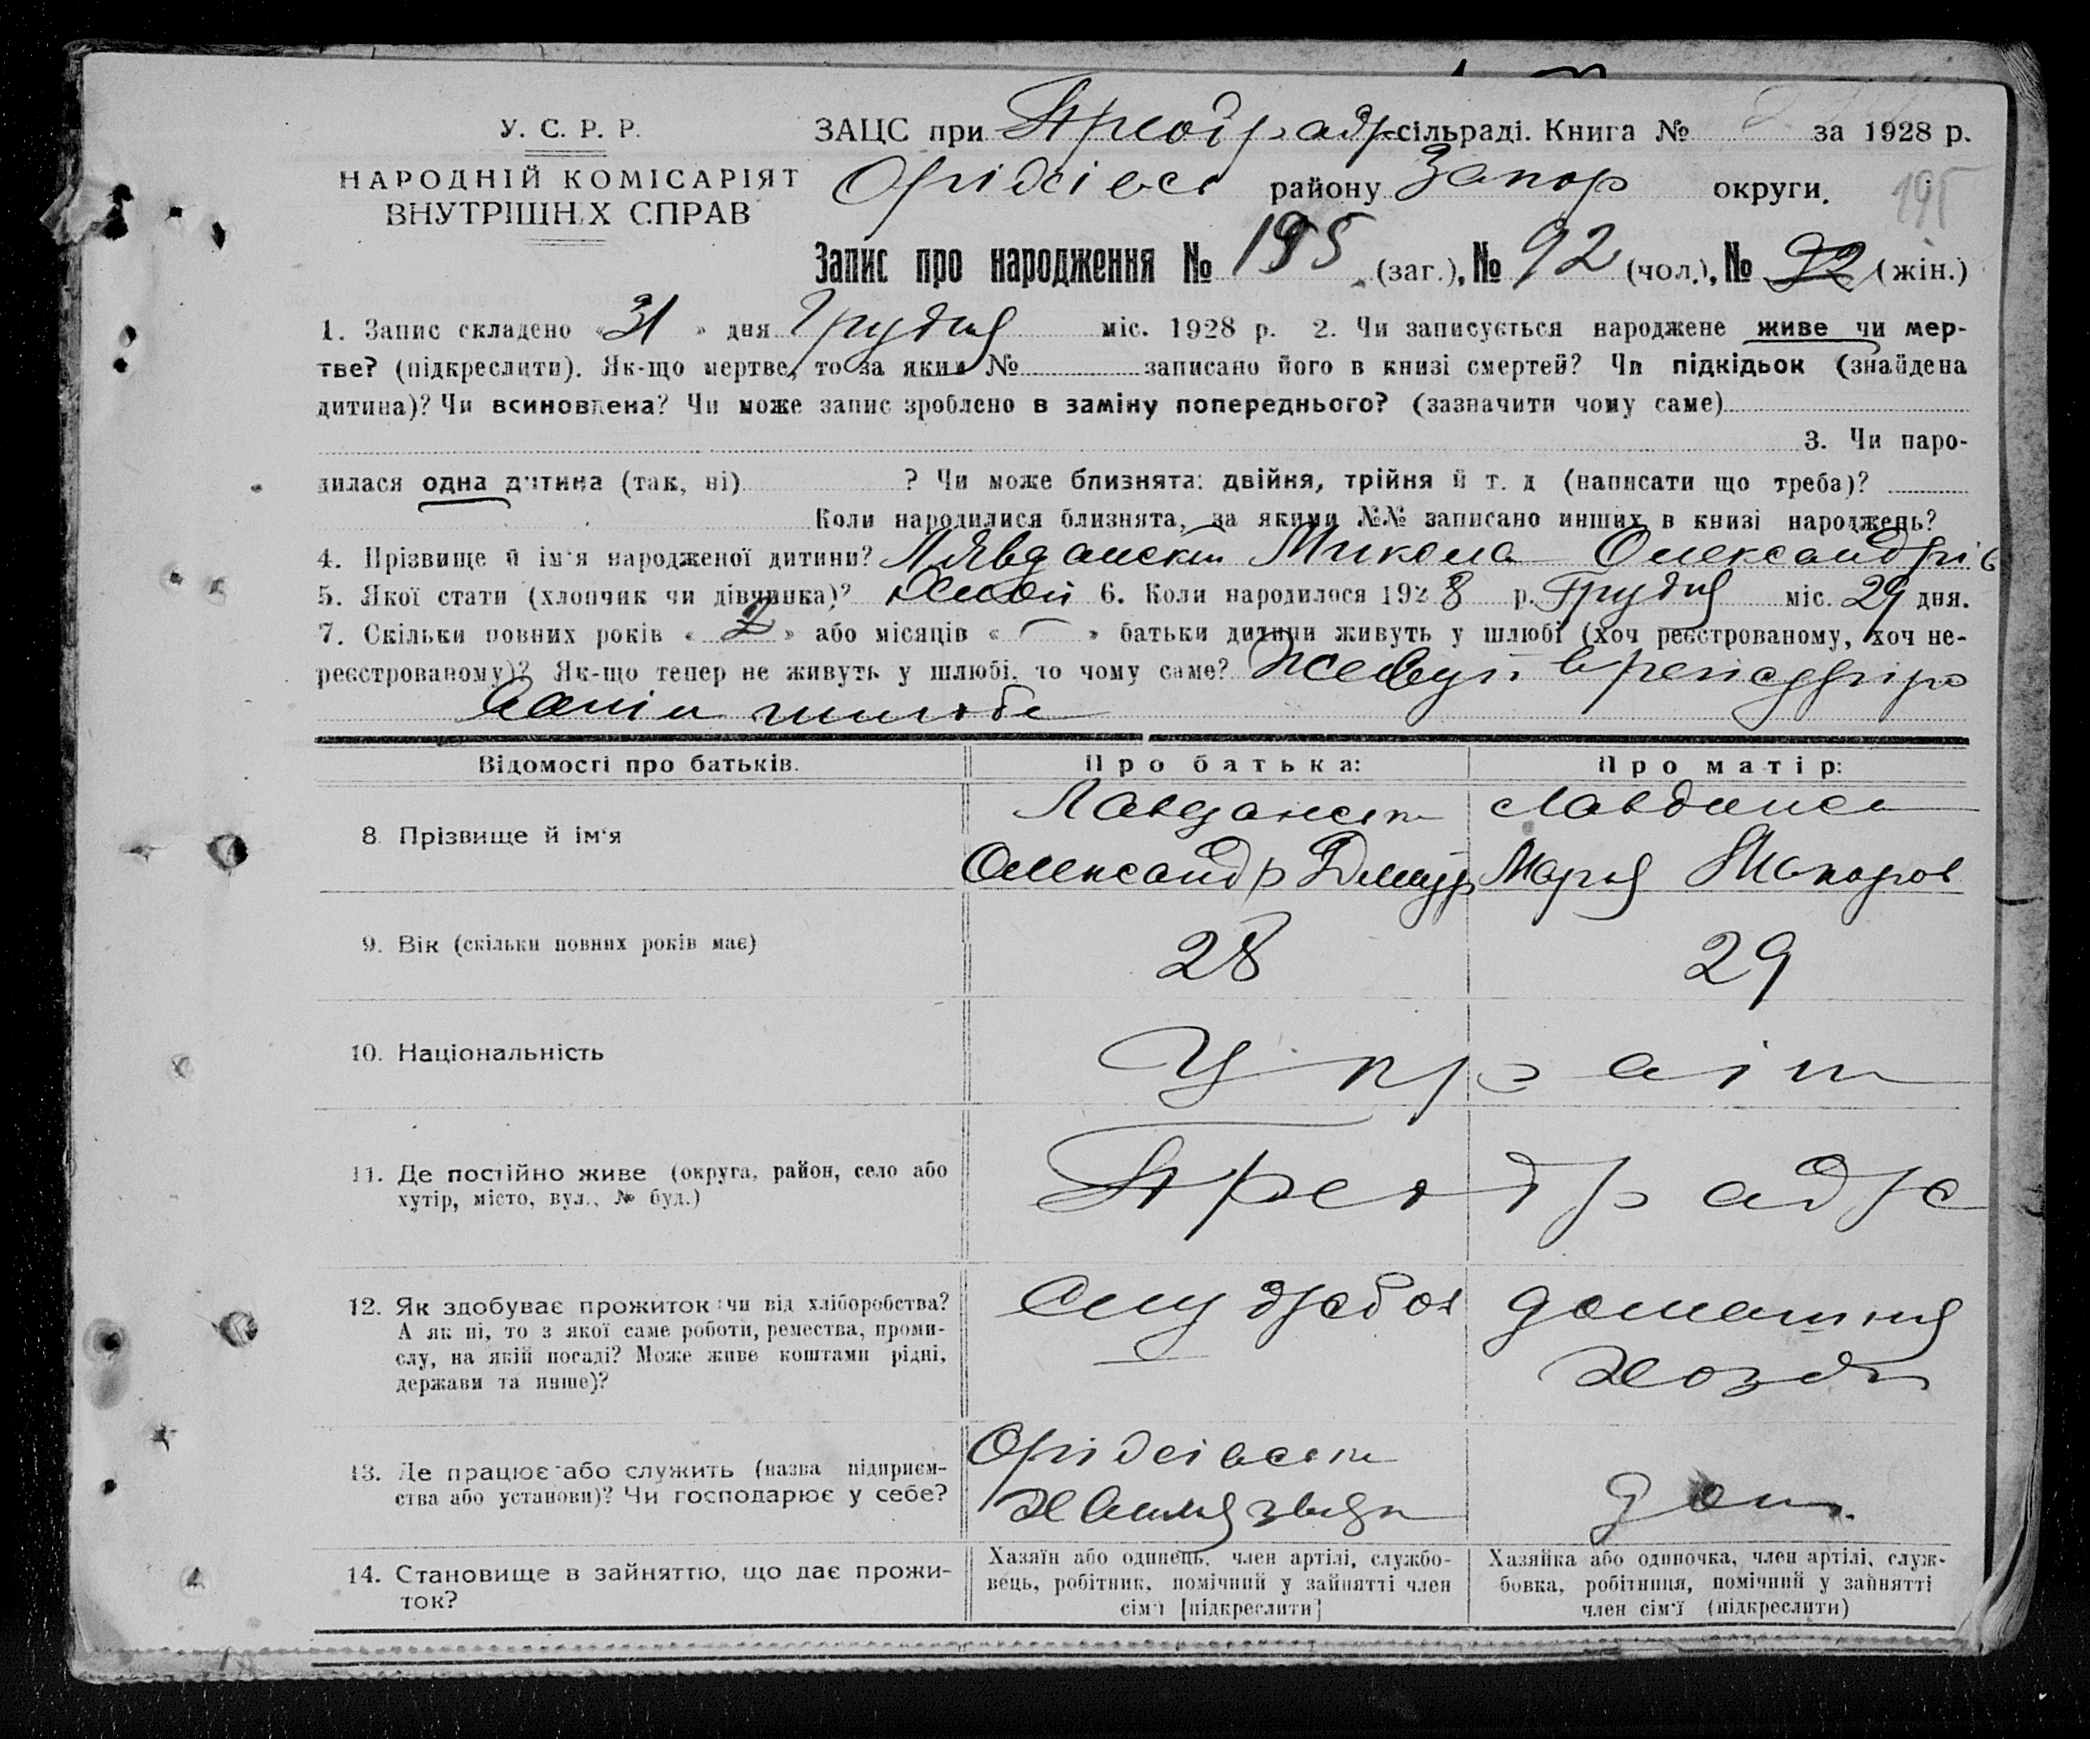 У. С. Р. Р.
НАРОДНІЙ КОМІСАРІЯТ
ВНУТРІШНІХ СПРАВ
ЗАЦС при Преобр сільраді. Книга № за 1928 р.
Оріхівсь району Запор округи.
195
Запис про народження № 195 (заг.), № 92 (чол.), № 92 (жін.)
1. Запис складено «31» дня Грудня міс. 1928 р. 2. Чи записується народжене живе чи мер-
тве? (підкреслити). Як-що мертве, то за яким № записано його в книзі смертей? Чи підкідьок (знайдена
дитина)? Чи всиновлена? Чи може запис зроблено в заміну попереднього? (зазначити чому саме)
3. Чи наро-
дилася одна дитина (так, ні) ? Чи може близнята: двійня, трійня й т. д (написати що треба)?
Коли народилися близнята, за якими №№ записано инших в книзі народжень?
4. Прізвище й ім'я народженої дитини? Микола Олександрів
5. Якої стати (хлопчик чи дівчинка)? 6. Коли народилося 1928 р. Грудня міс. 29 дня.
7. Скільки повних років «2» або місяців « » батьки дитини живуть у шлюбі (хоч реєстрованому, хоч не-
реєстрованому)? Як-що тепер не живуть у шлюбі, то чому саме? Живуть в
шлюбе
Відомості про батьків. Про батька: Про матір:
8. Прізвище й ім'я Лавданск Лавданск
Олександр Дмитр Мария Макаров
9. Вік (скільки повних років має) 28 29
10. Національність Украін
11. Де постійно живе (округа, район, село або
хутір, місто, вул., № буд.)
12. Як здобуває прожиток: чи від хліборобства? Службов домашня
А як ні, то з якої саме роботи, ремества, проми-
слу, на якій посаді? Може живе коштами рідні,
держави та инше)?
13. Де працює або служить (назва підприєм- Оріхівск
ства або установи)? Чи господарює у себе? дом.
14. Становище в зайняттю, що дає прожи-
ток?
Хазяїн або одинець, член артілі, службо-
вець, робітник, помічний у зайнятті член
сім'ї [підкреслити]
Хазяйка або одиночка, член артілі, служ-
бовка, робітниця, помічний у зайнятті
член сім'ї (підкреслити)